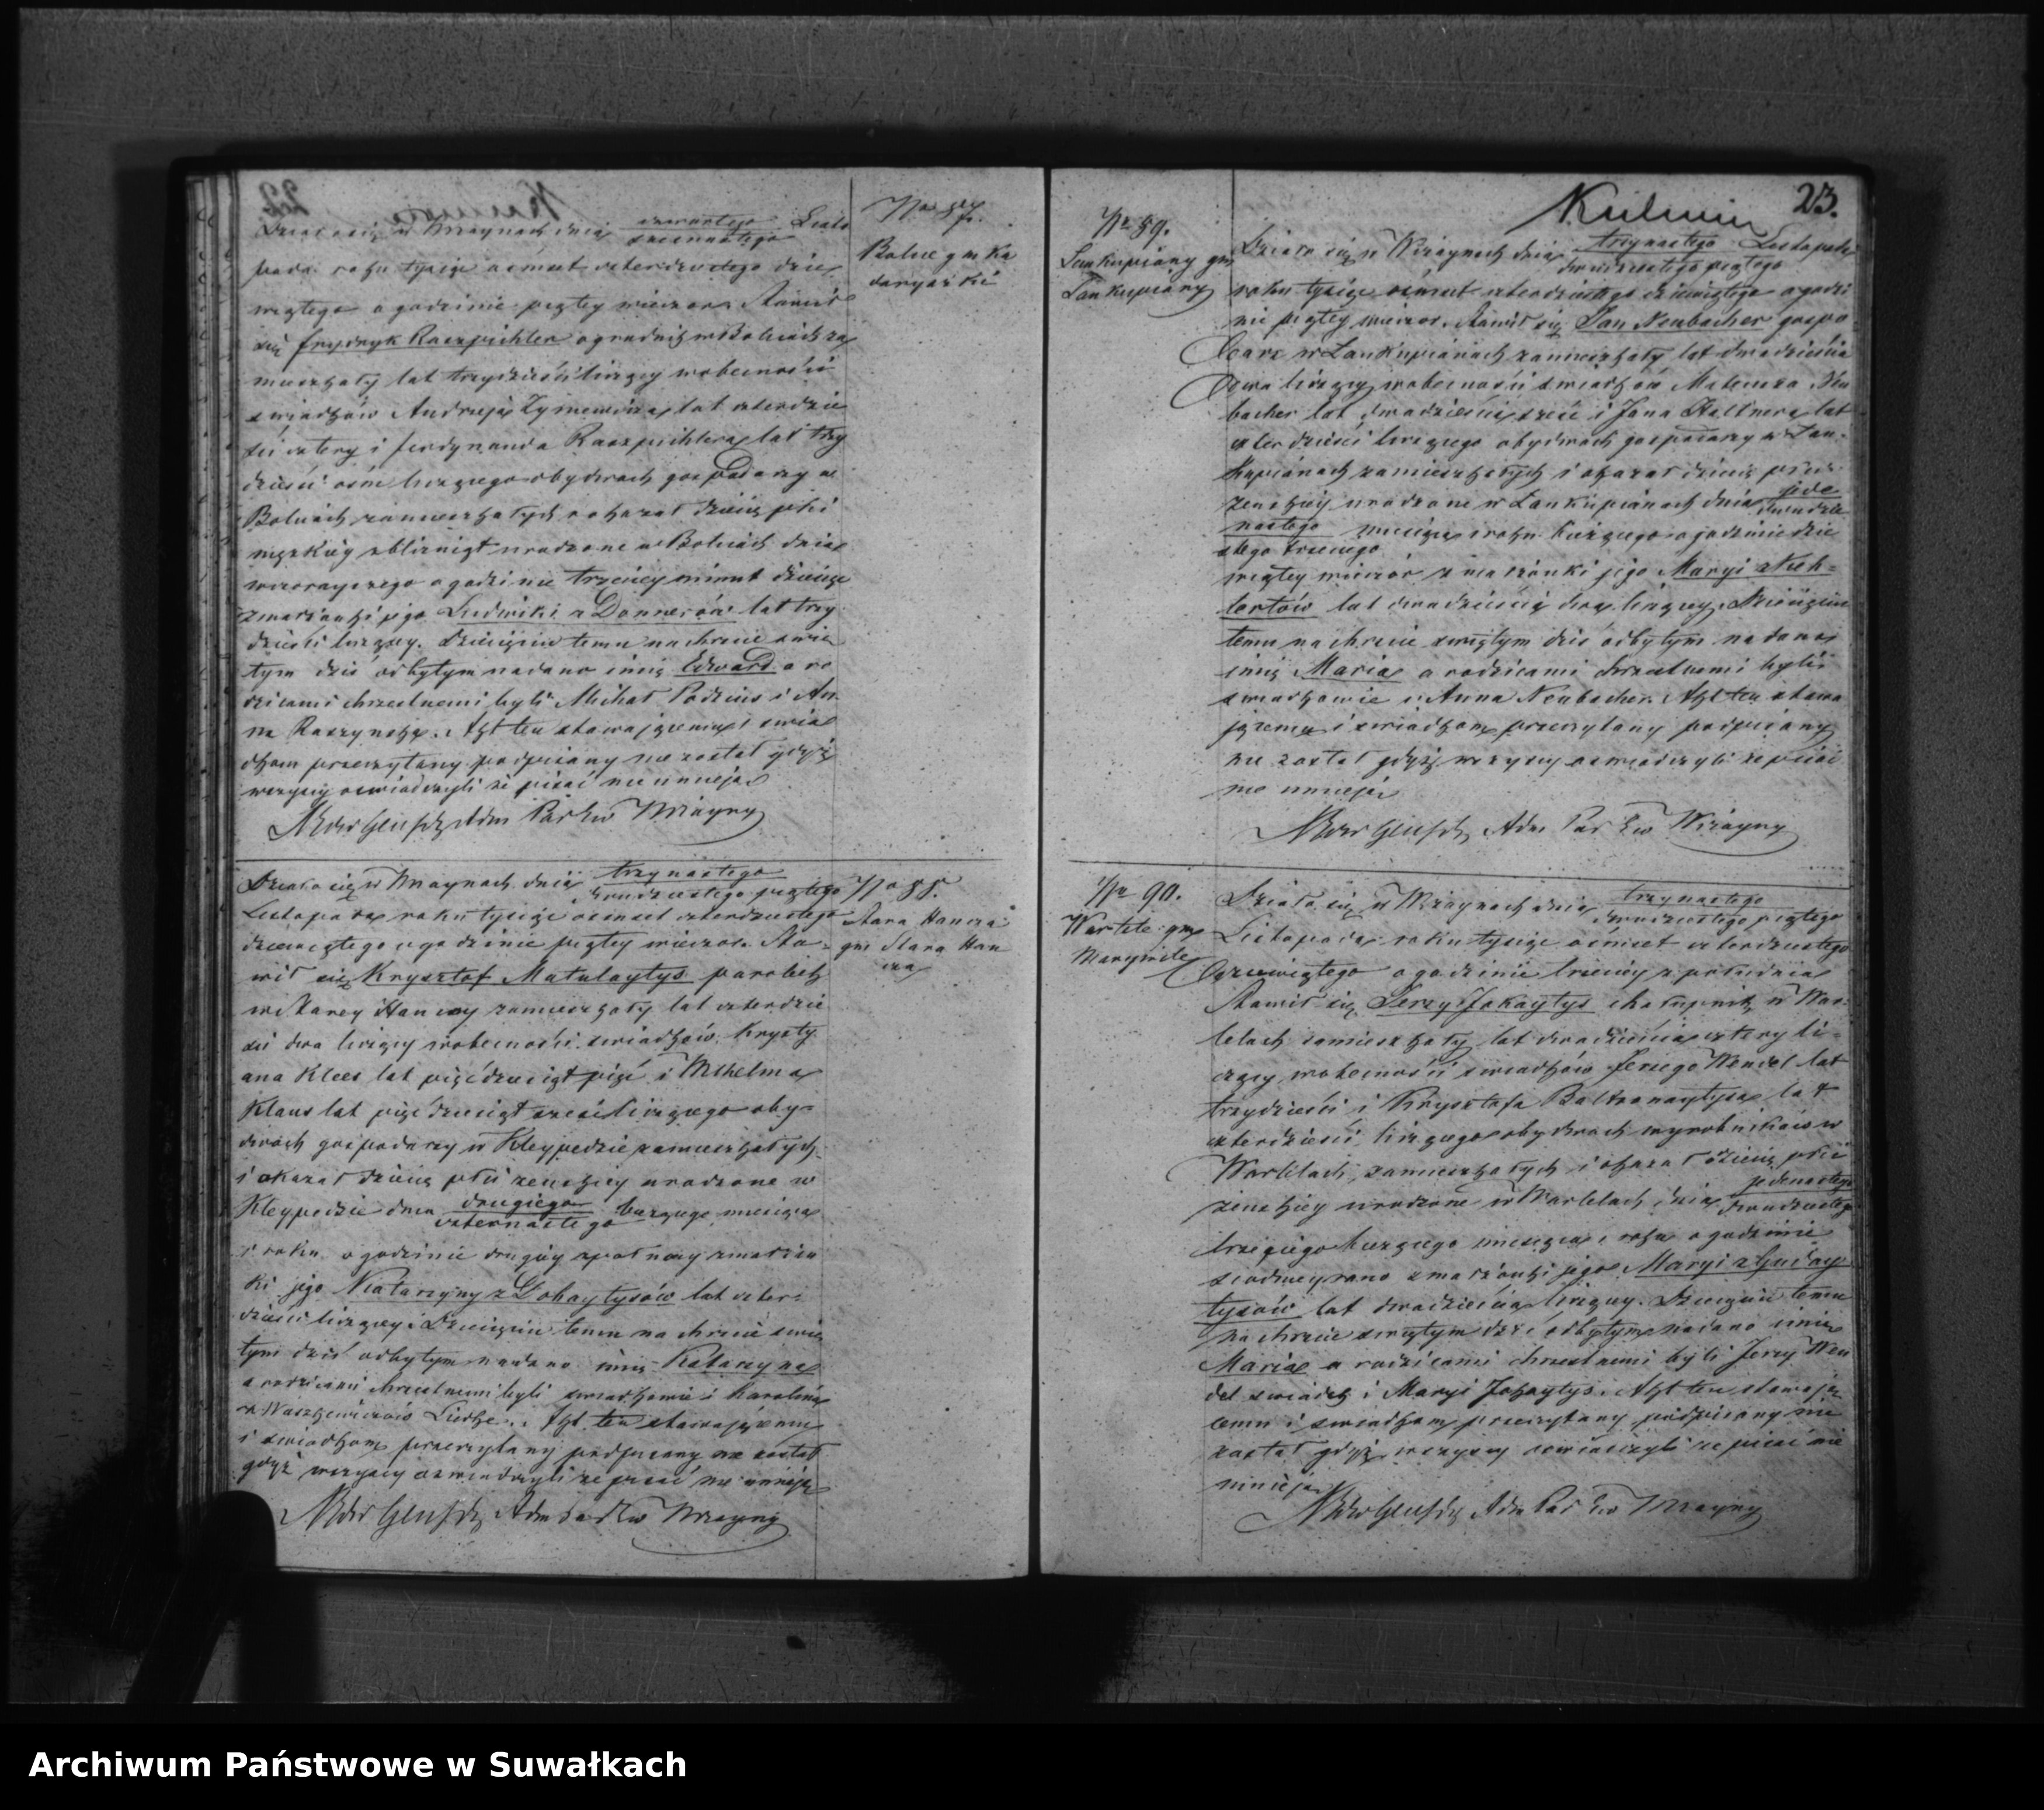 No 87.
Bolcie gm Ka
daryszki
Działo się w Wiżaynach dnia czwartego Listo
szesnastego
pada roku tysiąc ośmset czterdziestego dzie
wiątego o godzinie piątey wieczor. Stawił
się Frydryk Raszpichler ogrodnik w Bolciach za
mieszkały lat trzydzieści liczący w obecności
świadków Andrzeja Zymiewicza lat czterdzie
ści cztery i Ferdynanda Raszpichlera lat trzy
dzieści ośm liczącego obydwóch gospodarzy w
Bolciach zamieszkałych i okazał dziecię płci
męzkiéy zbliźnigt urodzone w Bolciach dnia
wczorayszego o godzinie trzeciéy minut dziesięć
z małżonki jego Ludwiki z Donnerów lat trzy
dzieści liczącey. Dziecięciu temu na chrzcie świę
tym dziś odbytym nadano imię Edward a ro
dzicami chrzestnemi byli Michał Podzius i An
na Raszynska. Akt ten stawającemu i świa
dkom przeczytany podpisany nie został gdyż
wszyscy oświadczyli że pisać nie umieją
Adm Par Ew Wiżayny
No 88.
Stara Hancza
gm Stara Han
cza
Działo się w Wiżaynach dnia trzynastego
dwudziestego piątego
Listopada roku tysiąc ośmset czterdziestego
dziewiątego o godzinie piątey wieczor. Sta-
wił się Krysztof Matulaytys parobek
w Starey Hanczy zamieszkały lat czterdzie
ści dwa liczący w obecności świadków Krysty
ana Klees lat pięćdziesiąt pięć i Wilhelma
Klaus lat pięćdziesiąt sześć liczącego oby-
dwóch gospodarzy w Kleypedzie zamieszkałych
i okazał dziecię płci żeńskiey urodzone w
Kleypedzie dnia drugiego bieżącego miesiąca
czternastego
i roku o godzinie drugiéy z północy z małżon
ki jego Katarzyny z Lokaytysów lat czter-
dzieści liczącey. Dziecięciu temu na chrzcie świę
tym dziś odbytym nadano imię Katarzyna
a rodzicami chrzestnemi byli świadkowie i Karolina
z Waszkiewiczów Liedke. Akt ten stawającemu
i świadkom przeczytany podpisany nie został
gdyż wszyscy oświadczyli że pisać nie umieją
Adm Par Ew Wiżayny
23.
No 89.
Lankupiany gm
Lankupiany
Działo się w Wiżaynach dnia trzynastego Listopada
dwudziestego piątego
roku tysiąc ośmset czterdziestego dziewiątego o godzi
nie piątey wieczor. Stawił się Jan Neubacher gospo
darz w Lankupianach zamieszkały lat dwadzieścia
dwa liczący w obecności świadków Mateusza Neu
bacher lat dwadzieścia sześć i Jana lat
czterdzieści liczącego obydwóch gospodarzy w Lan-
kupianach zamieszkałych i okazał dziecię płci
żeńskiéy urodzone w Lankupianach dnia jede
dwudzie
nastego miesiąca i roku bieżącego o godzinie dzie
stego trzeciego
wiątey wieczór z małżonki jego Maryi z Nich-
lertów lat dwadzieścia dwa liczącey. Dziecięciu
temu na chrzcie świętym dziś odbytym nadano
imię Maria a rodzicami chrzestnemi byli
świadkowie i Anna Neubacher. Akt ten stawa
jącemu i świadkom przeczytany podpisany
nie został gdyż wszyscy oświadczyli że pisać
nie umieją
Adm Par Ew Wiżayny
No 90.
Wartele gm
Marynile
Działo się w Wiżaynach dnia trzynastego
dwudziestego piątego
Listopada roku tysiąc ośmset czterdziestego
dziewiątego o godzinie trzeciéy z południa
Stawił się Jerzy Jokaytys chałupnik w War-
telach zamieszkały lat dwadzieścia cztery li-
czący w obecności świadków Jerzego Wendel lat
trzydzieści i Krysztofa Baltranaytysa lat
czterdzieści liczącego obydwóch wyrobników w
Wartelach zamieszkałych i okazał dziecię płci
żeńskiéy urodzone w Wartelach dnia jedenastego
dwudziestego
trzeciego bieżącego miesiąca i roku o godzinie
siódmey rano z małżonki jego Maryi z Gudoy
tysów lat dwadzieścia liczącey. Dziecięciu temu
na chrzcie świętym dziś odbytym nadano imię
Maria a rodzicami chrzestnemi byli Jerzy Wen
del świadek i Maryi Jokaytys. Akt ten stawają
cemu i świadkom przeczytany podpisany nie
został gdyż wszyscy oświadczyli że pisać nie
umieją
Adm Par Ew Wiżayny
Archiwum Państwowe w Suwałkach